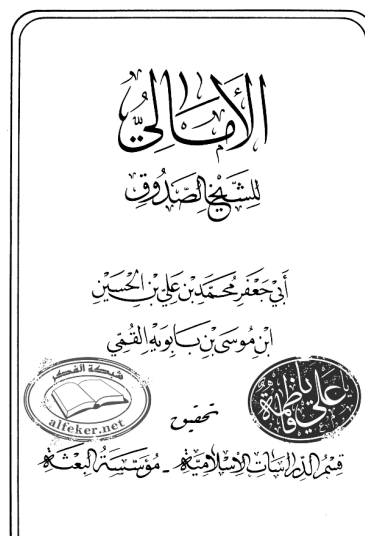 الأَمَالِيُّ
لِلشَّيْخِ الصَّدُوقِ
أَبِي جَعْفَرٍ مُحَمَّدِ بْنِ عَلِيِّ بْنِ الْحُسَيْنِ
ابْنِ مُوسَى بْنِ بَابَوَيْهِ الْقُمِّي
شبكة الفكر
alfeker.net
علي يا فاطمة
تحقيق
قِسْمُ الدِّرَاسَاتِ الإِسْلَامِيَّةِ - مُؤَسَّسَةُ الْبِعْثَةِ